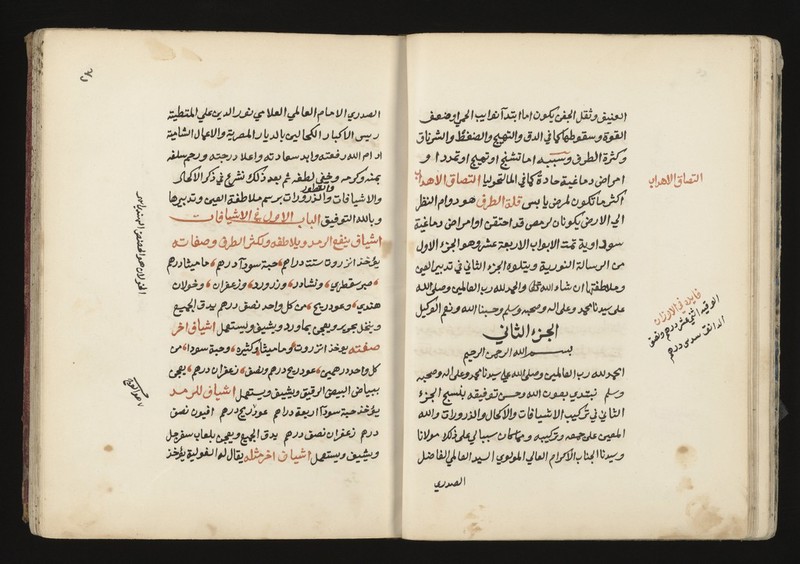 العنيف وثقل الجفن يكون اما ابتدآ نفا بيب الحمى او ضعف
القوة وسقوطها كما في الدق والتهيج والضغط والشرناق
وكثرة الطرف وسببه اما تشنج او تهيج او تمدد او
امراض دماغية حادة كما في المالنخوليا التصاق الاهداب
اكثر ما تكون لمرض يابس قلة الطرف هو دوام النظر
الى الارض يكونان لرمص قد احتقن او امراض دماغية
سوداوية تمت الابواب الاربعة عشر وهو الجزء الاول
من الرسالة النورية ويتلوه الجزء الثاني في تدبير العين
وملاطفتها ان شاء الله تعالى والحمد لله رب العالمين وصلى الله
على سيدنا محمد وعلى اله وصحبه وسلم وحسبنا الله ونعم الوكيل
الجزء الثاني
بسم الله الرحمن الرحيم
الحمد لله رب العالمين وصلى الله على سيدنا محمد وعلى اله وصحبه
وسلم نبتدي بعون الله وحسن توفيقه بلسج الجزء
الثاني في تركيب الاشيافات والاكحال والذرورات والله
المعين على جمعه وتركيبه سببا لي على ذلك مولانا
وسيدنا الجناب الاكرام العالي المولوي السيد العالم الفاضل
الصدري
التصاق الاهداب
فايدة في الاوزان
الوقيه اثني عشر درهم ونصف
الدانق سدس درهم
الصدري الامام العالمي العلامي نور الدين علي المتطبة
رييس الاكبار الكحالين بالديار المصرية والاعمال الشامية
ادام الله رفعته وابد سعادته واعلا درجته ورحم سلفه
بمنه وكرمه وخفي لطفه ثم بعد ذلك نشرع في ذكر الاكحال
والقطور
والاشيافات والذرورات برسم ملاطفة العين وتدبيرها
وبالله التوفيق الباب الاول في الاشيافات
اشياف ينفع الرمد ويلاطفه ولكثر الطرف وصفاته
يؤخذ انزروت ستة دراهم حبة سودآ درهم ماميثا درهم
صبر سقطري ونشادر وزرورد وزعفران وخولان
هندي وعود ريح من كل واحد نصف درهم يدق الجميع
وينخل بحرير ويعجن بماورد ويشيف ويستعمل اشياف اخر
صفته يوخذ انزروت وماميثا وكثيره وحبة سودا من
كل واحد درهمين عود ريح درهم ونصف زعفران درهم يعجن
ببياض البيض الرقيق ويشيف ويستعمل اشياف للرمد
يؤخذ حبة سودآ اربعة دراهم عود ريح درهم افيون نصف
درهم زعفران نصف درهم يدق الجميع ويعجن بلعاب سفرجل
ويشيف ويستعمل اشياف اخر مثله يقال له الفولية يؤخذ
الخولان هو الحضض الهندي